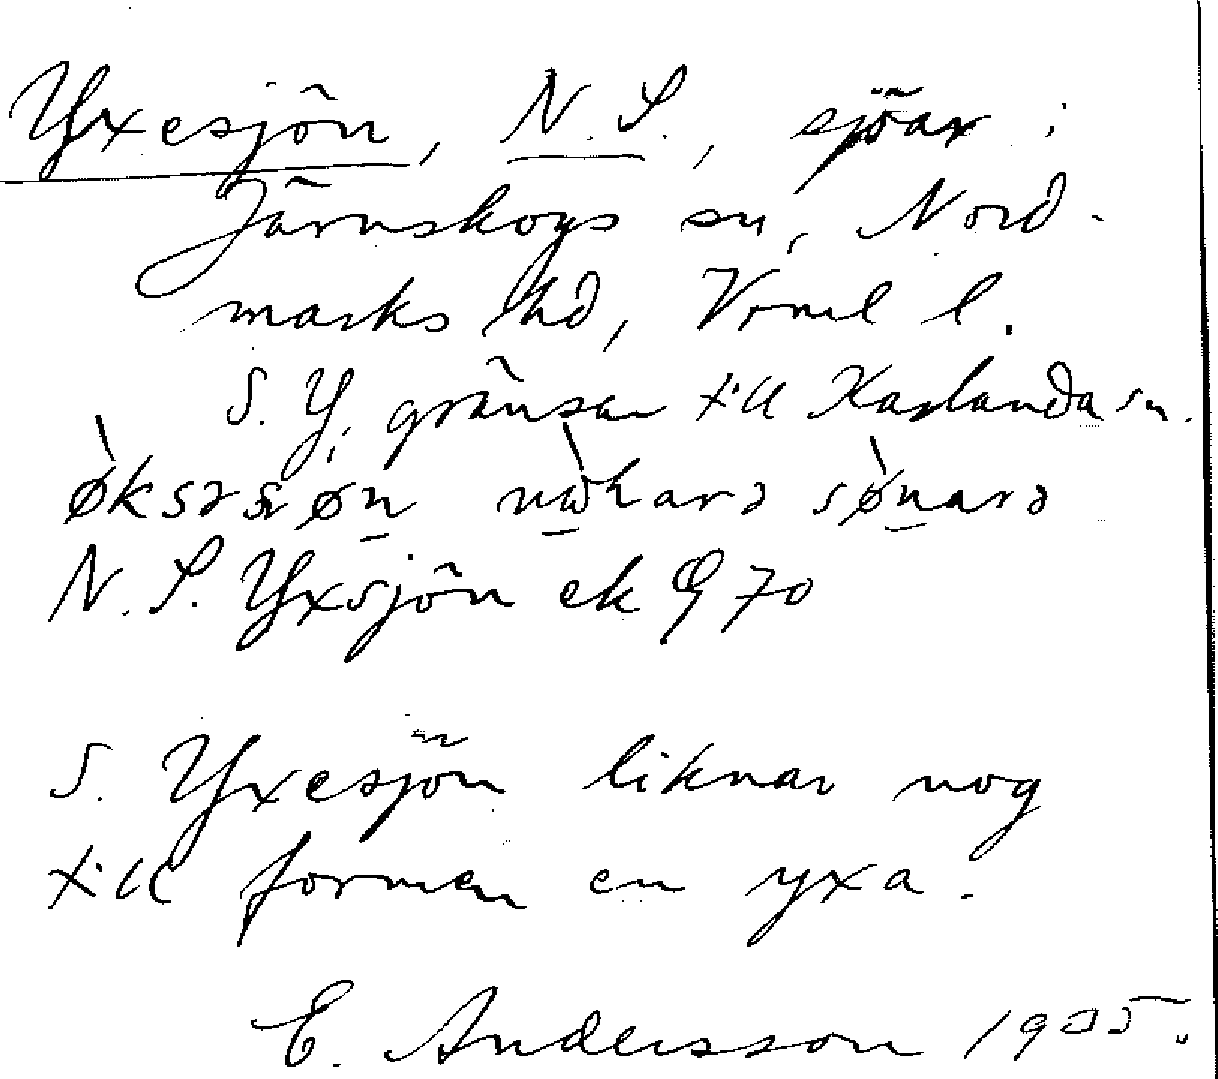 Yxesjön, N. S., sjöar i
Järnskogs sn, Nord-
marks hd, Vrml l.
S. Y. gränsar till Karlanda sn.
N. S. Yxsjön ek 970
S. Yxesjön liknar nog
till formen en yxa.
E. Andersson 1935.